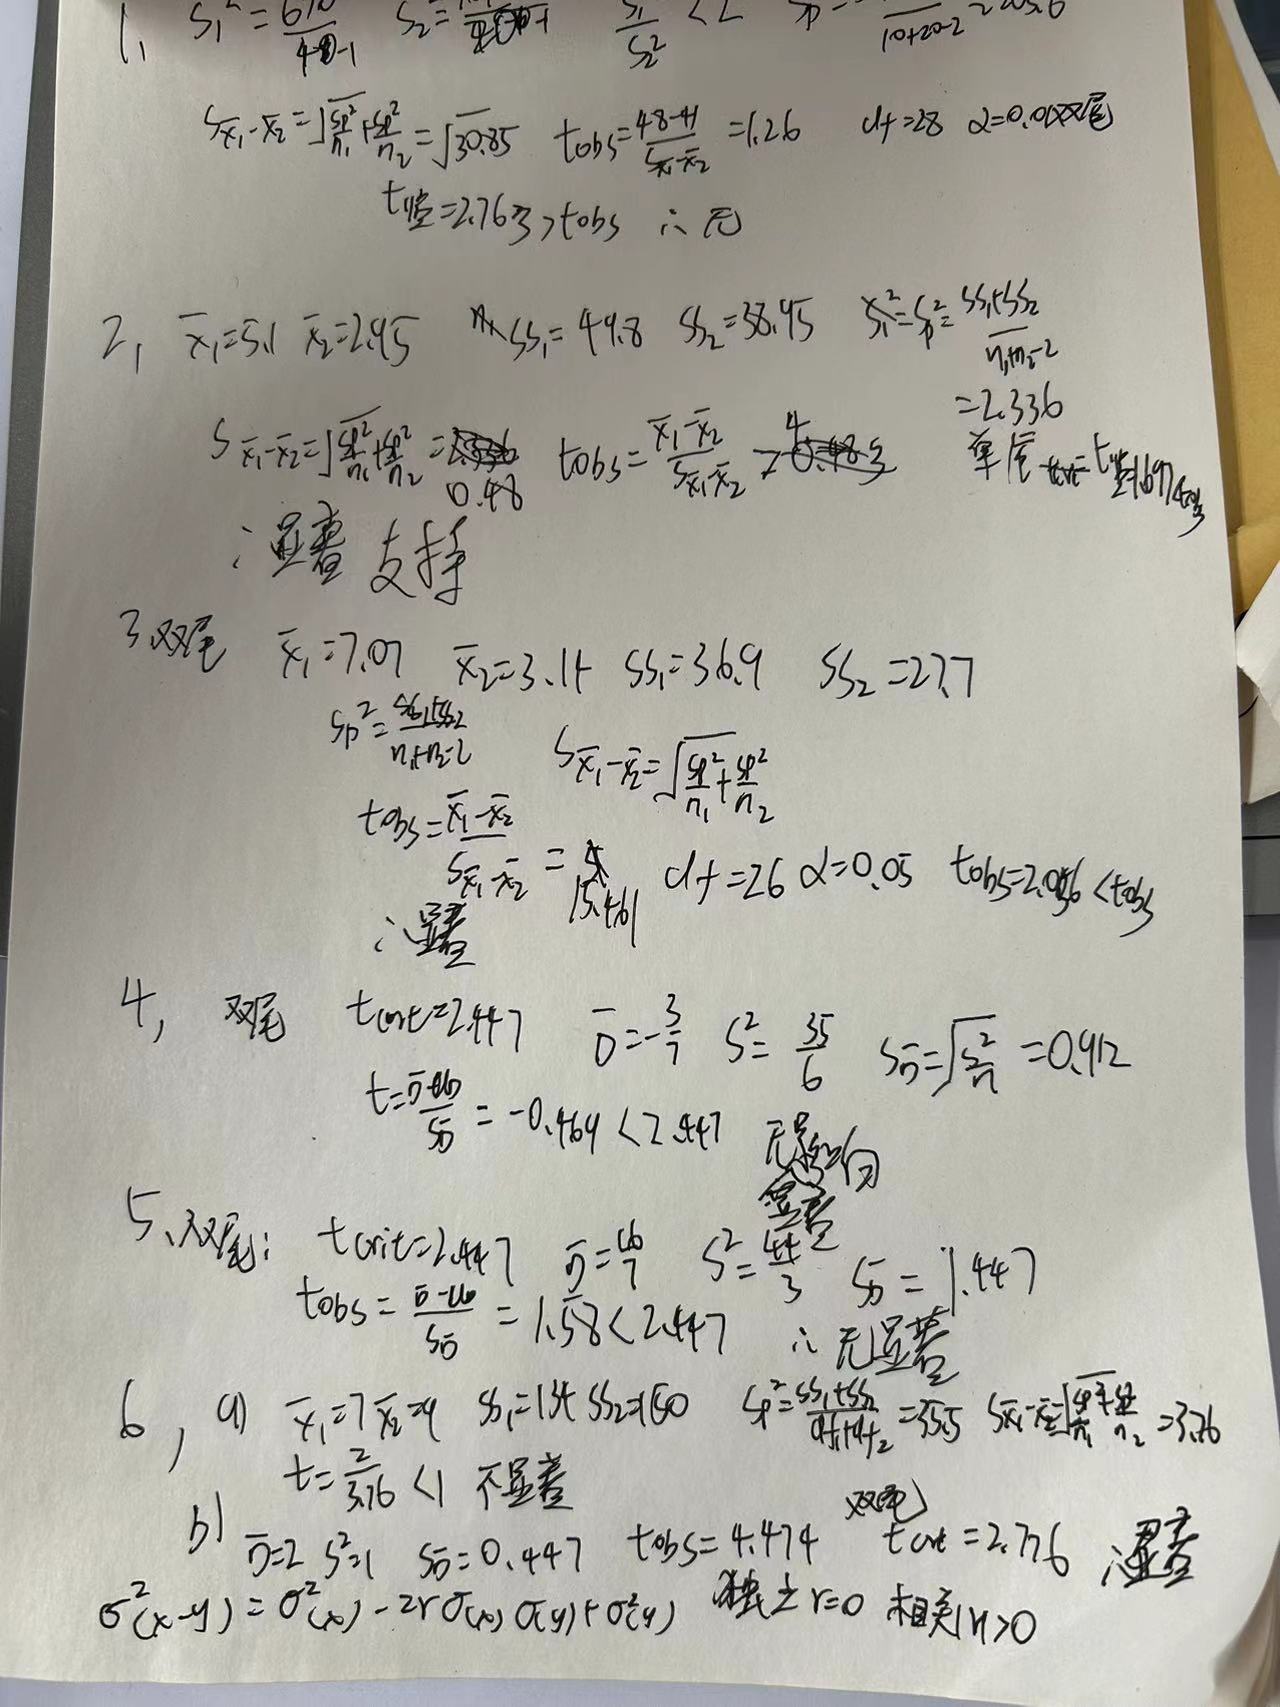 1, S₁²=670/ S₂²= S₁²/S₂²<2 10+20-2
S x̄₁-x̄₂=√(Sp²/n₁+Sp²/n₂)=√30.85 tobs=48-41/S x̄₁-x̄₂=1.26 df=28 α=0.01双尾
t临=2.763>tobs ∴无
2, x̄₁=5.1 x̄₂=2.95 SS₁=49.8 SS₂=38.95 Sp²=SS₁+SS₂/n₁+n₂-2
=2.336
S x̄₁-x̄₂=√(Sp²/n₁+Sp²/n₂)=0.48 tobs=x̄₁-x̄₂/S x̄₁-x̄₂=4 单尾 t临=1.697<tobs
∴显著 支持
3.双尾 x̄₁=7.07 x̄₂=3.14 SS₁=36.9 SS₂=27.7
Sp²=SS₁+SS₂/n₁+n₂-2 S x̄₁-x̄₂=√(Sp²/n₁+Sp²/n₂)
tobs=x̄₁-x̄₂/S x̄₁-x̄₂= df=26 α=0.05 tobs=2.056<tobs
∴显著
4, 双尾 tcrit=2.447 D̄=-3/7 S²=35/6 S D̄=√(S²/n)=0.912
t= =-0.469<2.447 无影响
显著
5、双尾: tcrit=2.447 D̄=16/7 S²=44/3 S D̄=1.447
tobs=D̄-u₀/S D̄=1.58<2.447 ∴无显著
6, a) x̄₁=7 x̄₂=9 SS₁=134 SS₂=150 Sp²=SS₁+SS₂/df₁+df₂=35.5 S x̄₁-x̄₂=√(Sp²/n₁+Sp²/n₂)=3.76
t=2/3.76<1 不显著
b) D̄=2 S²=1 S D̄=0.447 tobs=4.474 双尾 tcrit=2.776 ∴显著
σ²(x-y)=σ²(x)-2rσ(x)σ(y)+σ²(y) 独立r=0 相关r>0